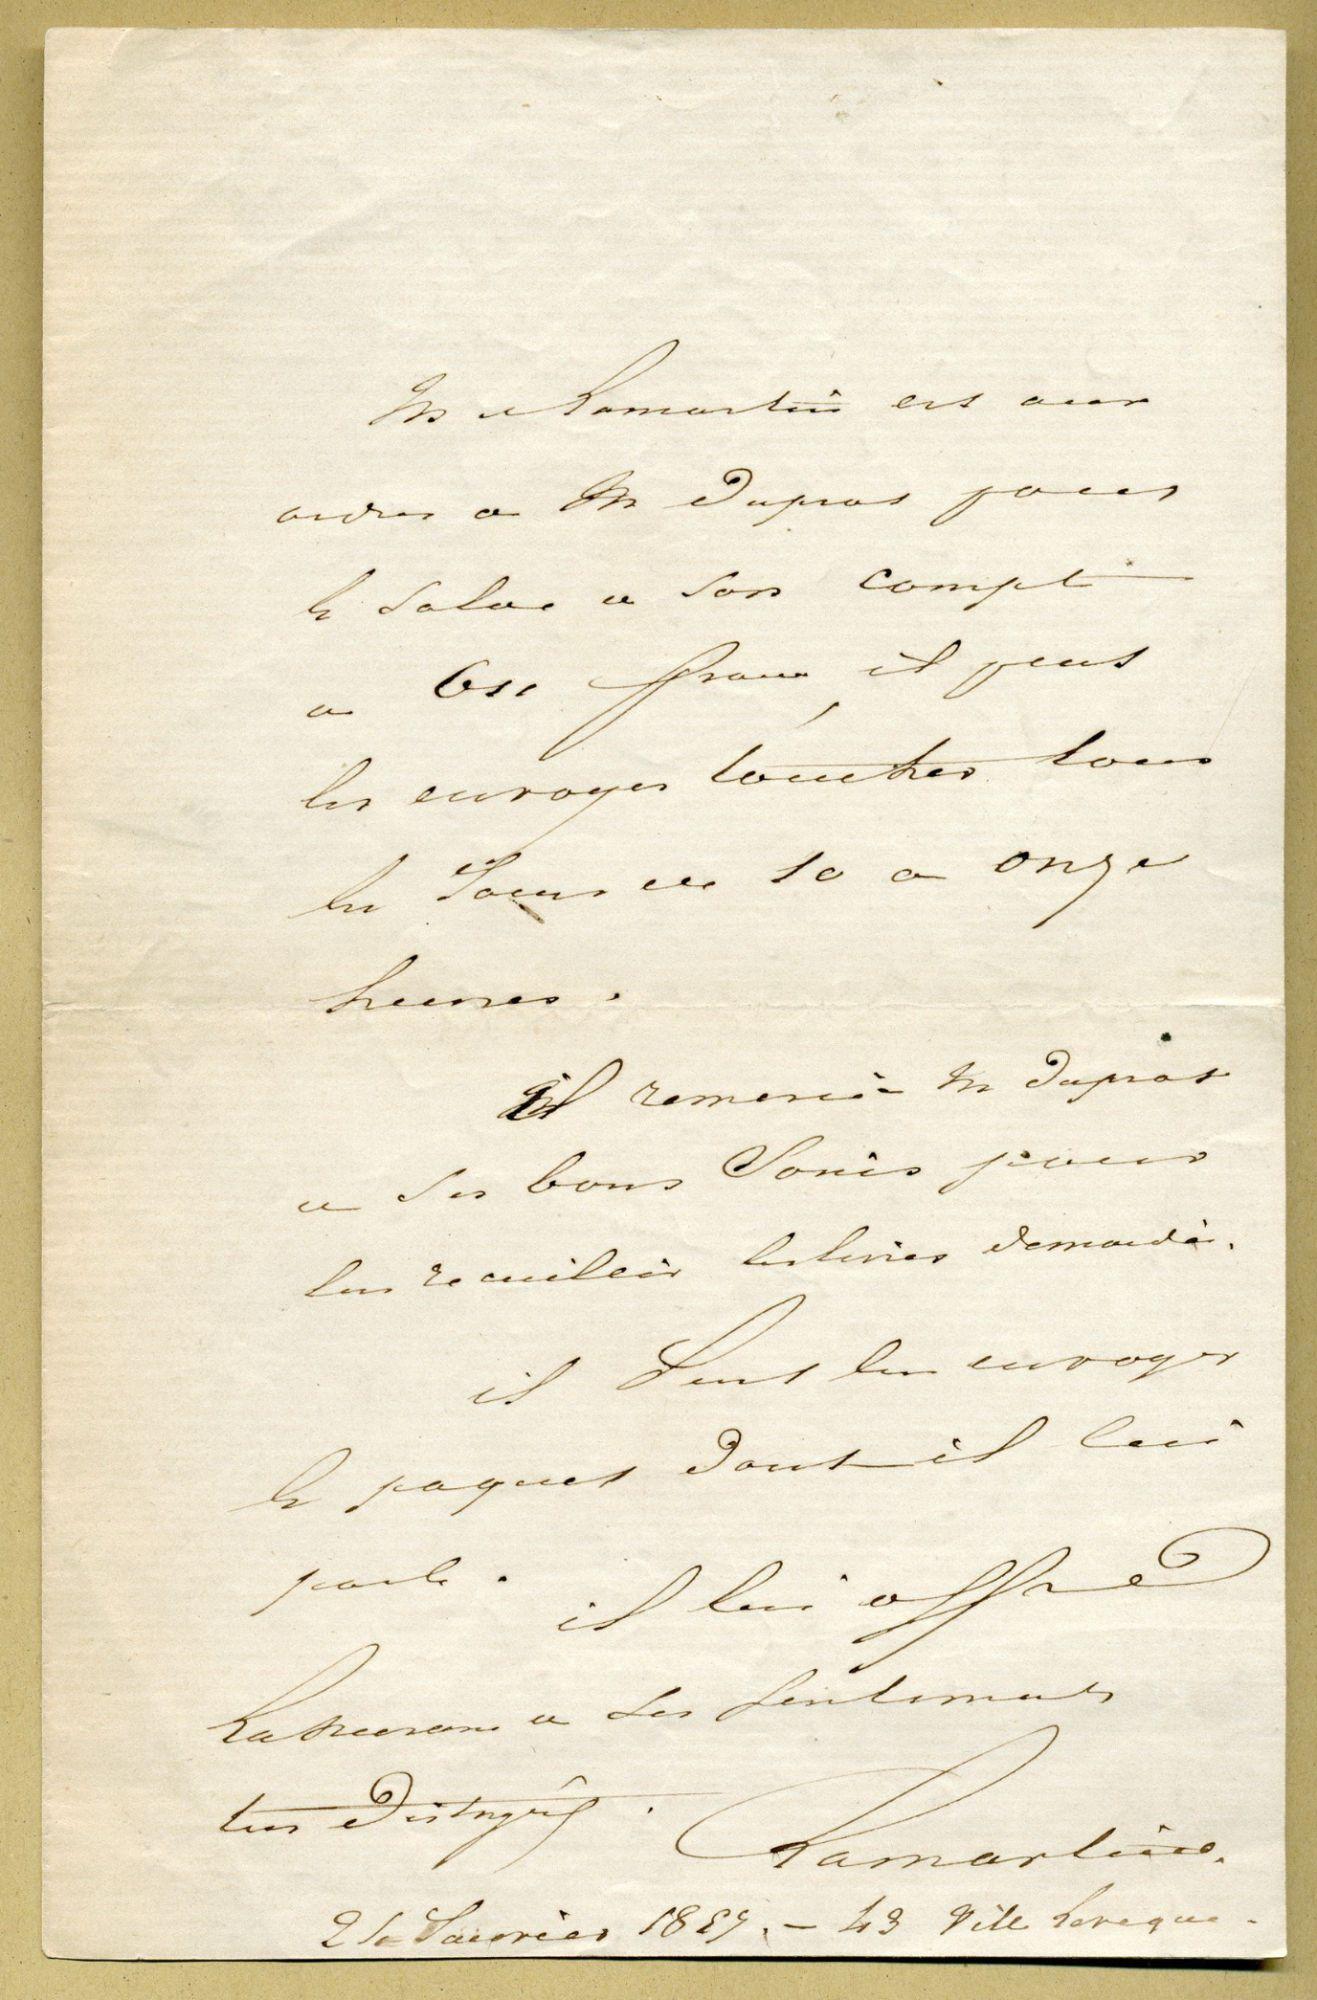 M de Lamartine est aux
ordres de M Dupras pour
le solde de son compte
de francs, il peut
les envoyer toucher tous
les jours de 10 a onze
heures.
il remercie M Dupras
de ses bons soins pour
recueillir les livres demandés.
il peut envoyer
le paquet dont il lui
parle.
il lui offre
de ses sentiments
tres distingués.
Lamartine.
Janvier 1857. — 43 Ville Leveque.